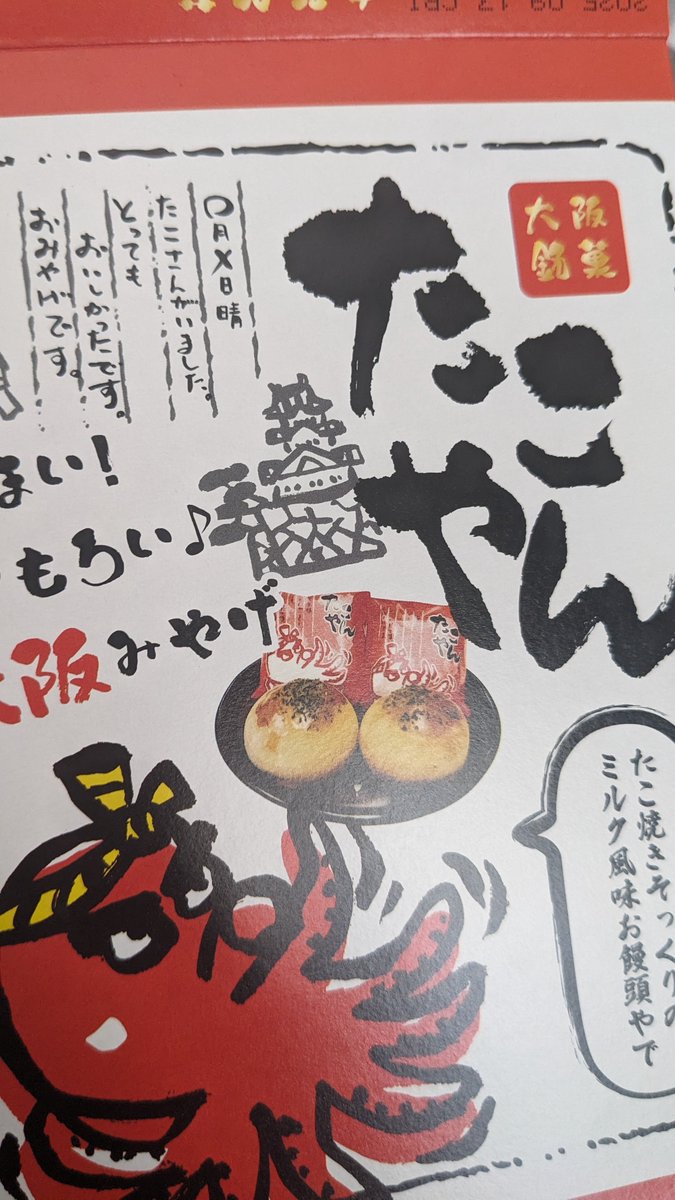 2025.09.13 CBI
大阪
銘菓
たこ
やん
□月×日晴
たこさんがいました。
とっても
おいしかったです。
おみやげです。
まい!
もろい♪
大阪みやげ
たこやん
たこやん
たこ焼きそっくりの
ミルク風味お饅頭やで